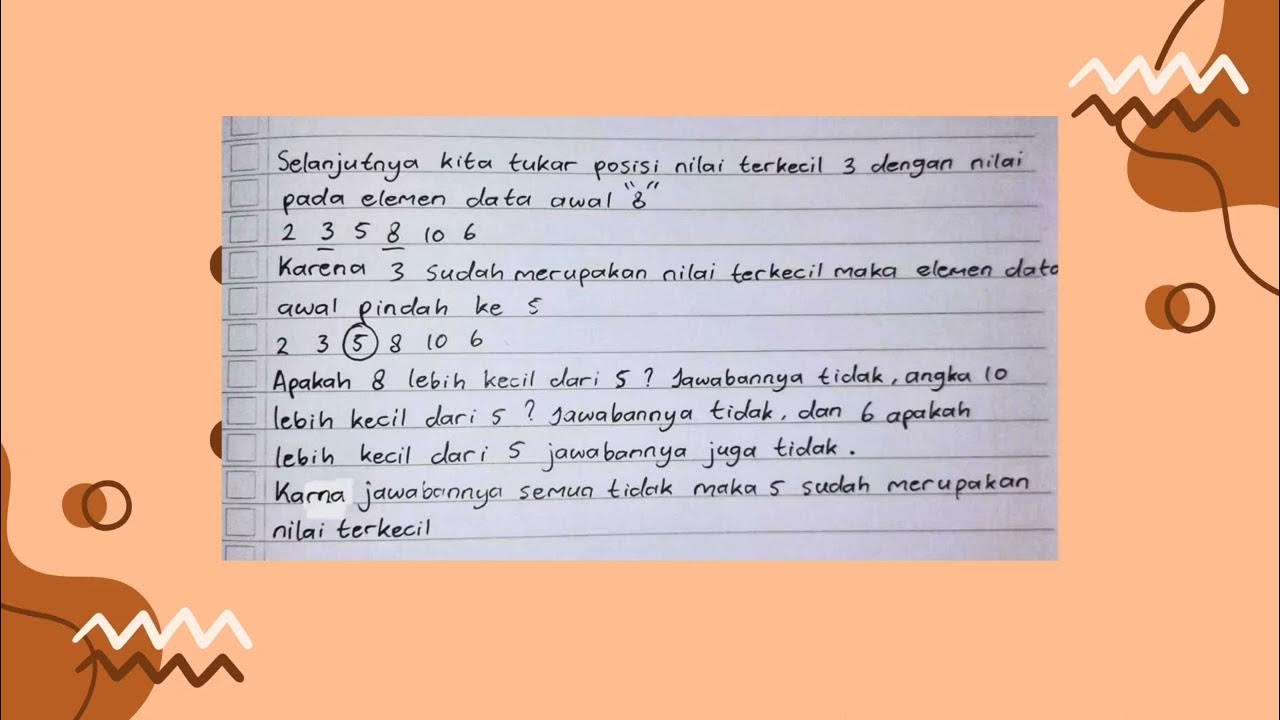 Selanjutnya kita tukar posisi nilai terkecil 3 dengan nilai
pada elemen data awal "8"
2 3 5 8 10 6
Karena 3 sudah merupakan nilai terkecil maka elemen data
awal pindah ke 5
2 3 5 8 10 6
Apakah 8 lebih kecil dari 5 ? Jawabannya tidak, angka 10
lebih kecil dari 5 ? Jawabannya tidak, dan 6 apakah
lebih kecil dari 5 jawabannya juga tidak.
Karna jawabannya semua tidak maka 5 sudah merupakan
nilai terkecil